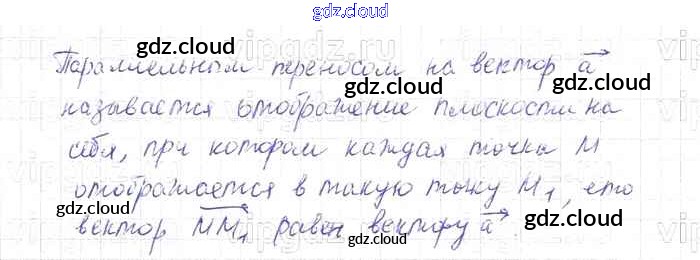 gdz.cloud
gdz.cloud gdz.cloud
Параллельным переносом на вектор a⃗
называется отображение плоскости на
gdz.cloud gdz.cloud
себя, при котором каждая точка M
отображается в такую точку M₁, что
gdz.cloud gdz.cloud
вектор MM₁ равен вектору a⃗.
gdz.cloud gdz.cloud